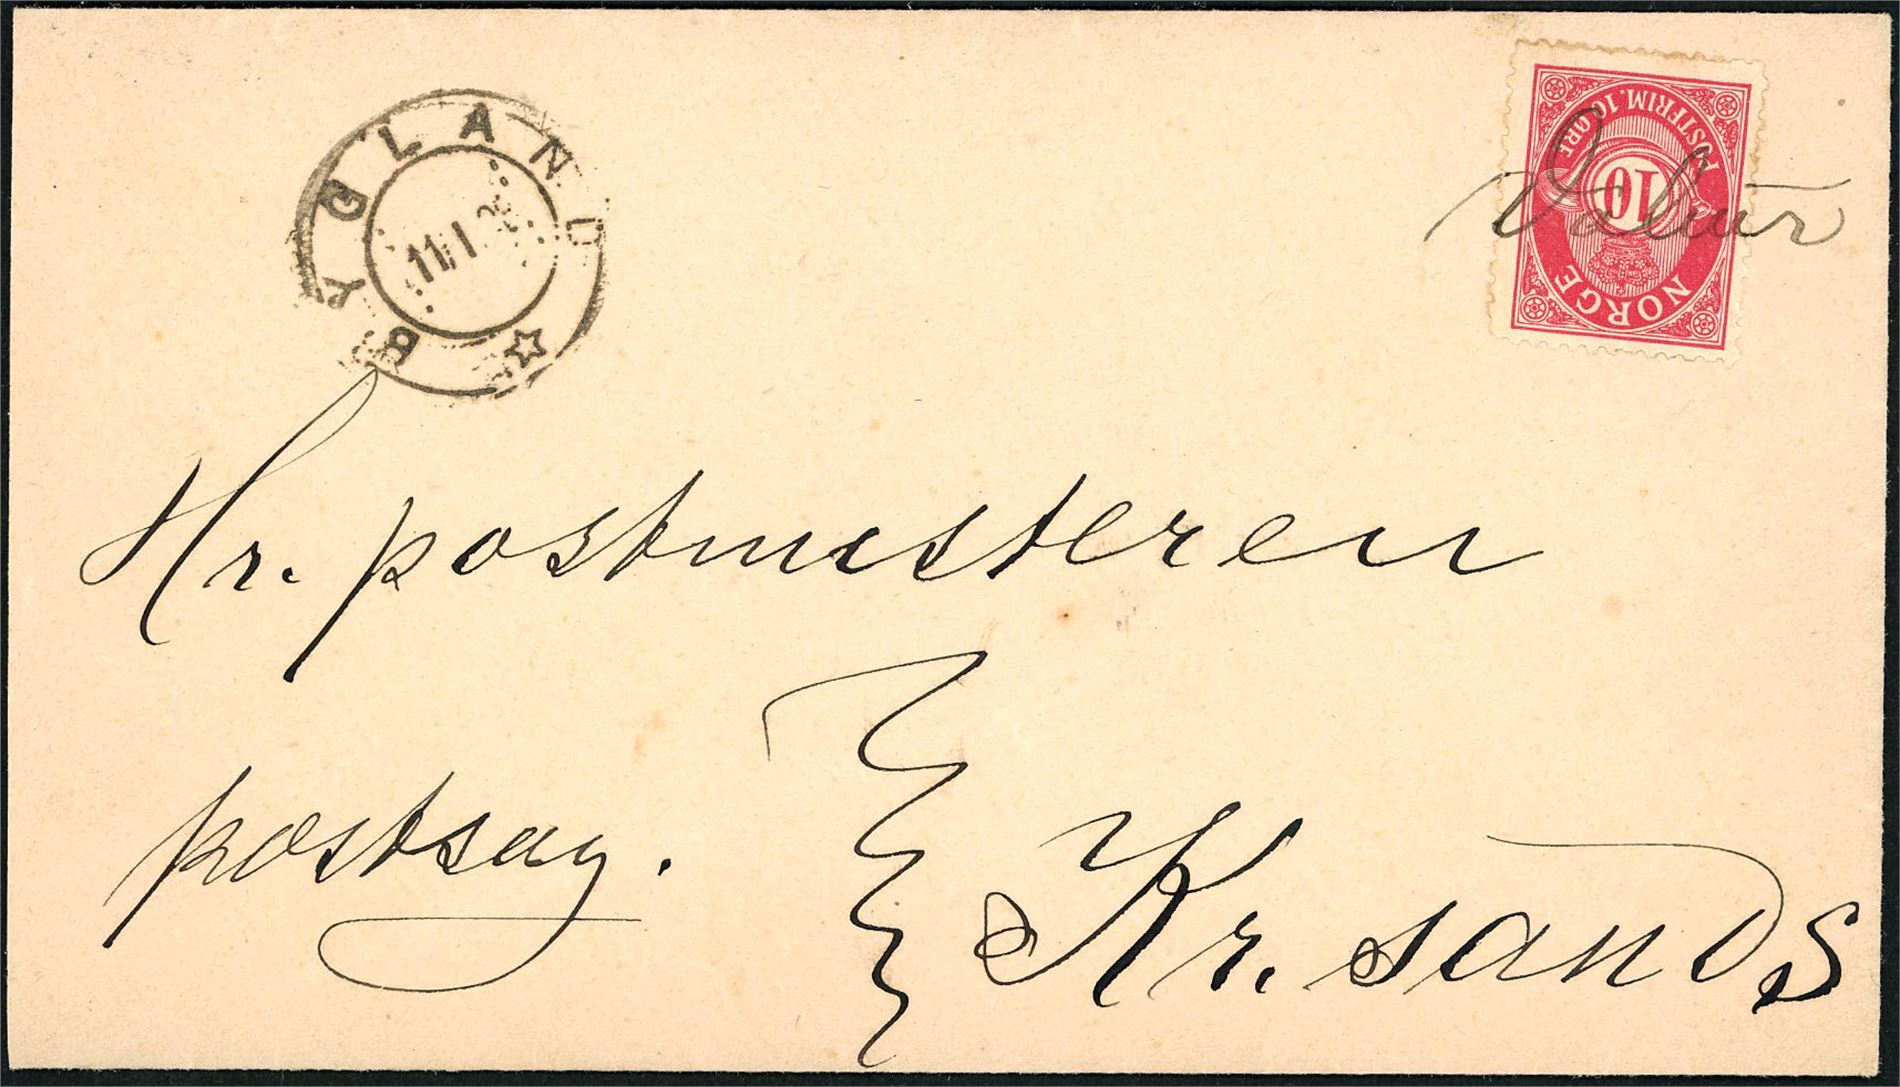 BYGLAND
11 1
POSTFRIM. 10 ØRE
10
NORGE
Hr. postmesteren
postsag.
Kr. sands